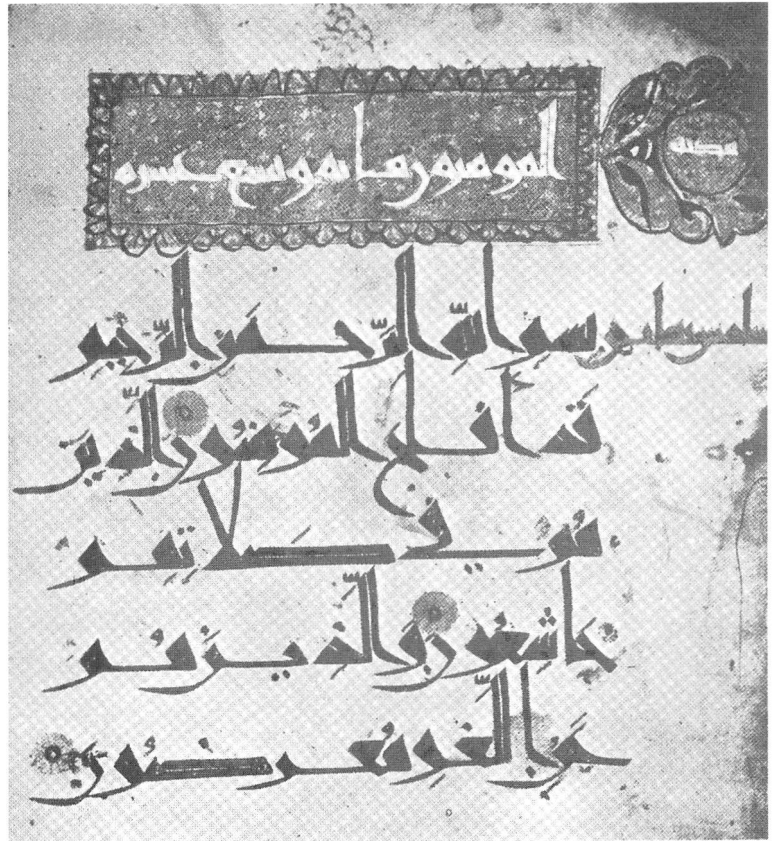 المومنون مائه وتسع عشره
بسم الله الرَّحمَنِ الرَّحِيمِ
قَد أَفلَحَ المُؤمِنُونَ الَّذِينَ
هُم فِي صَلَاتِهِم
خَاشِعُونَ وَالَّذِينَ هُم
عَنِ اللَّغوِ مُعرِضُونَ